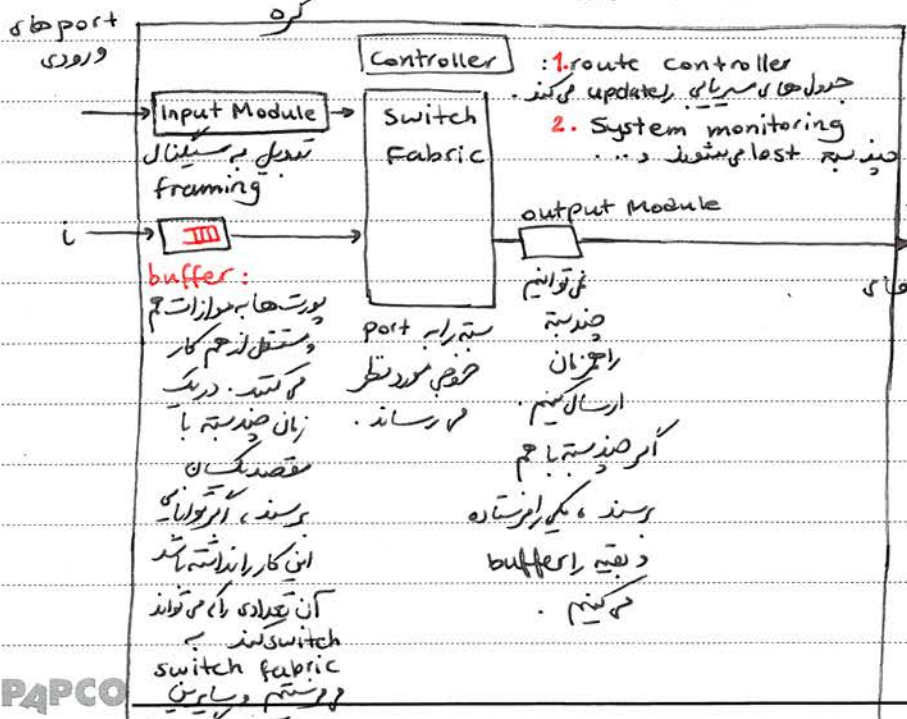 port های
ورودی
گره
Controller
: 1. route controller
جدول های مسیریابی را update می کند.
2. System monitoring
چند بسته lost می شوند و ...
Input Module
تبدیل به سیگنال
framing
Switch
Fabric
output Module
i
buffer :
پورت ها به موازات هم
و مستقل از هم کار
می کنند. در یک
زمان چند بسته با
مقصد یکسان
برسند، اگر توانایی
این کار را نداشته باشد
آن تعدادی را که می تواند
switch کند به
switch fabric
می فرستیم و سایرین
بسته را به port
خروجی مورد نظر
می رساند.
نمی توانیم
چند بسته
را همزمان
ارسال کنیم.
اگر چند بسته با هم
برسند، یکی را فرستاده
و بقیه را buffer
می کنیم.
های
PAPCO